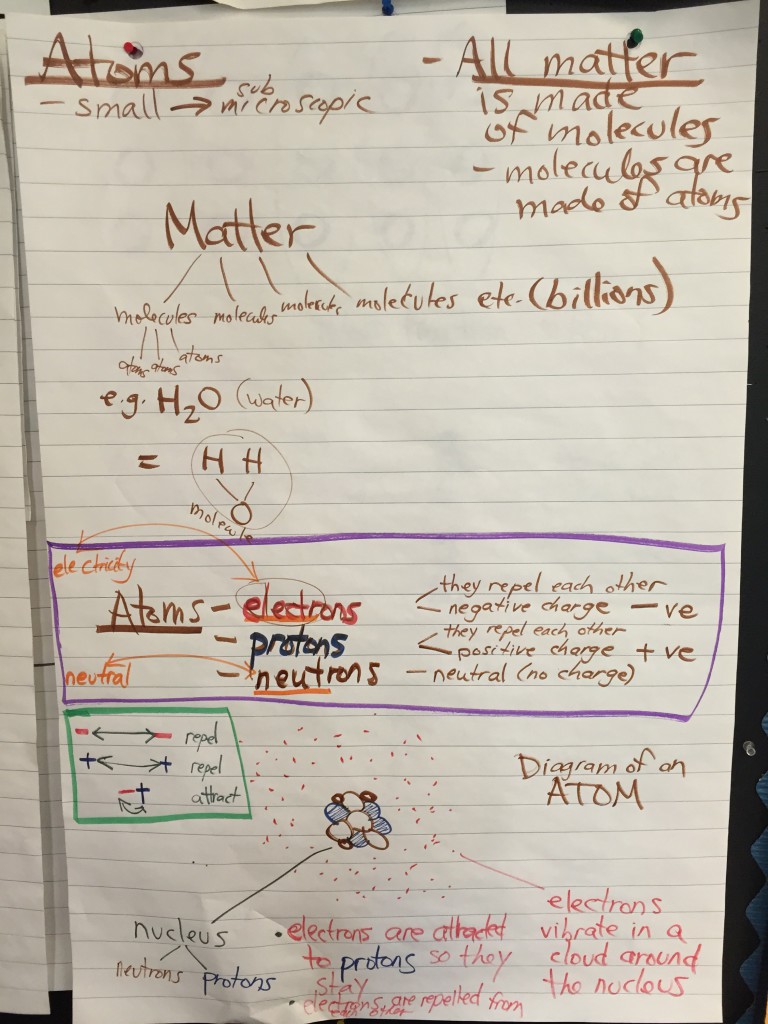 Atoms
- small → sub microscopic
- All matter
is made
of molecules
- molecules are
made of atoms
Matter
molecules molecules molecules molecules etc. (billions)
atoms atoms atoms
e.g. H₂O (water)
= H H
O
molecule
electricity
Atoms - electrons
they repel each other
negative charge -ve
- protons
they repel each other
positive charge +ve
neutral
- neutrons - neutral (no charge)
- ↔ - repel
+ ↔ + repel
- + attract
Diagram of an
ATOM
nucleus
neutrons protons
• electrons are attracted
to protons so they
stay
• electrons are repelled from
each other
electrons
vibrate in a
cloud around
the nucleus